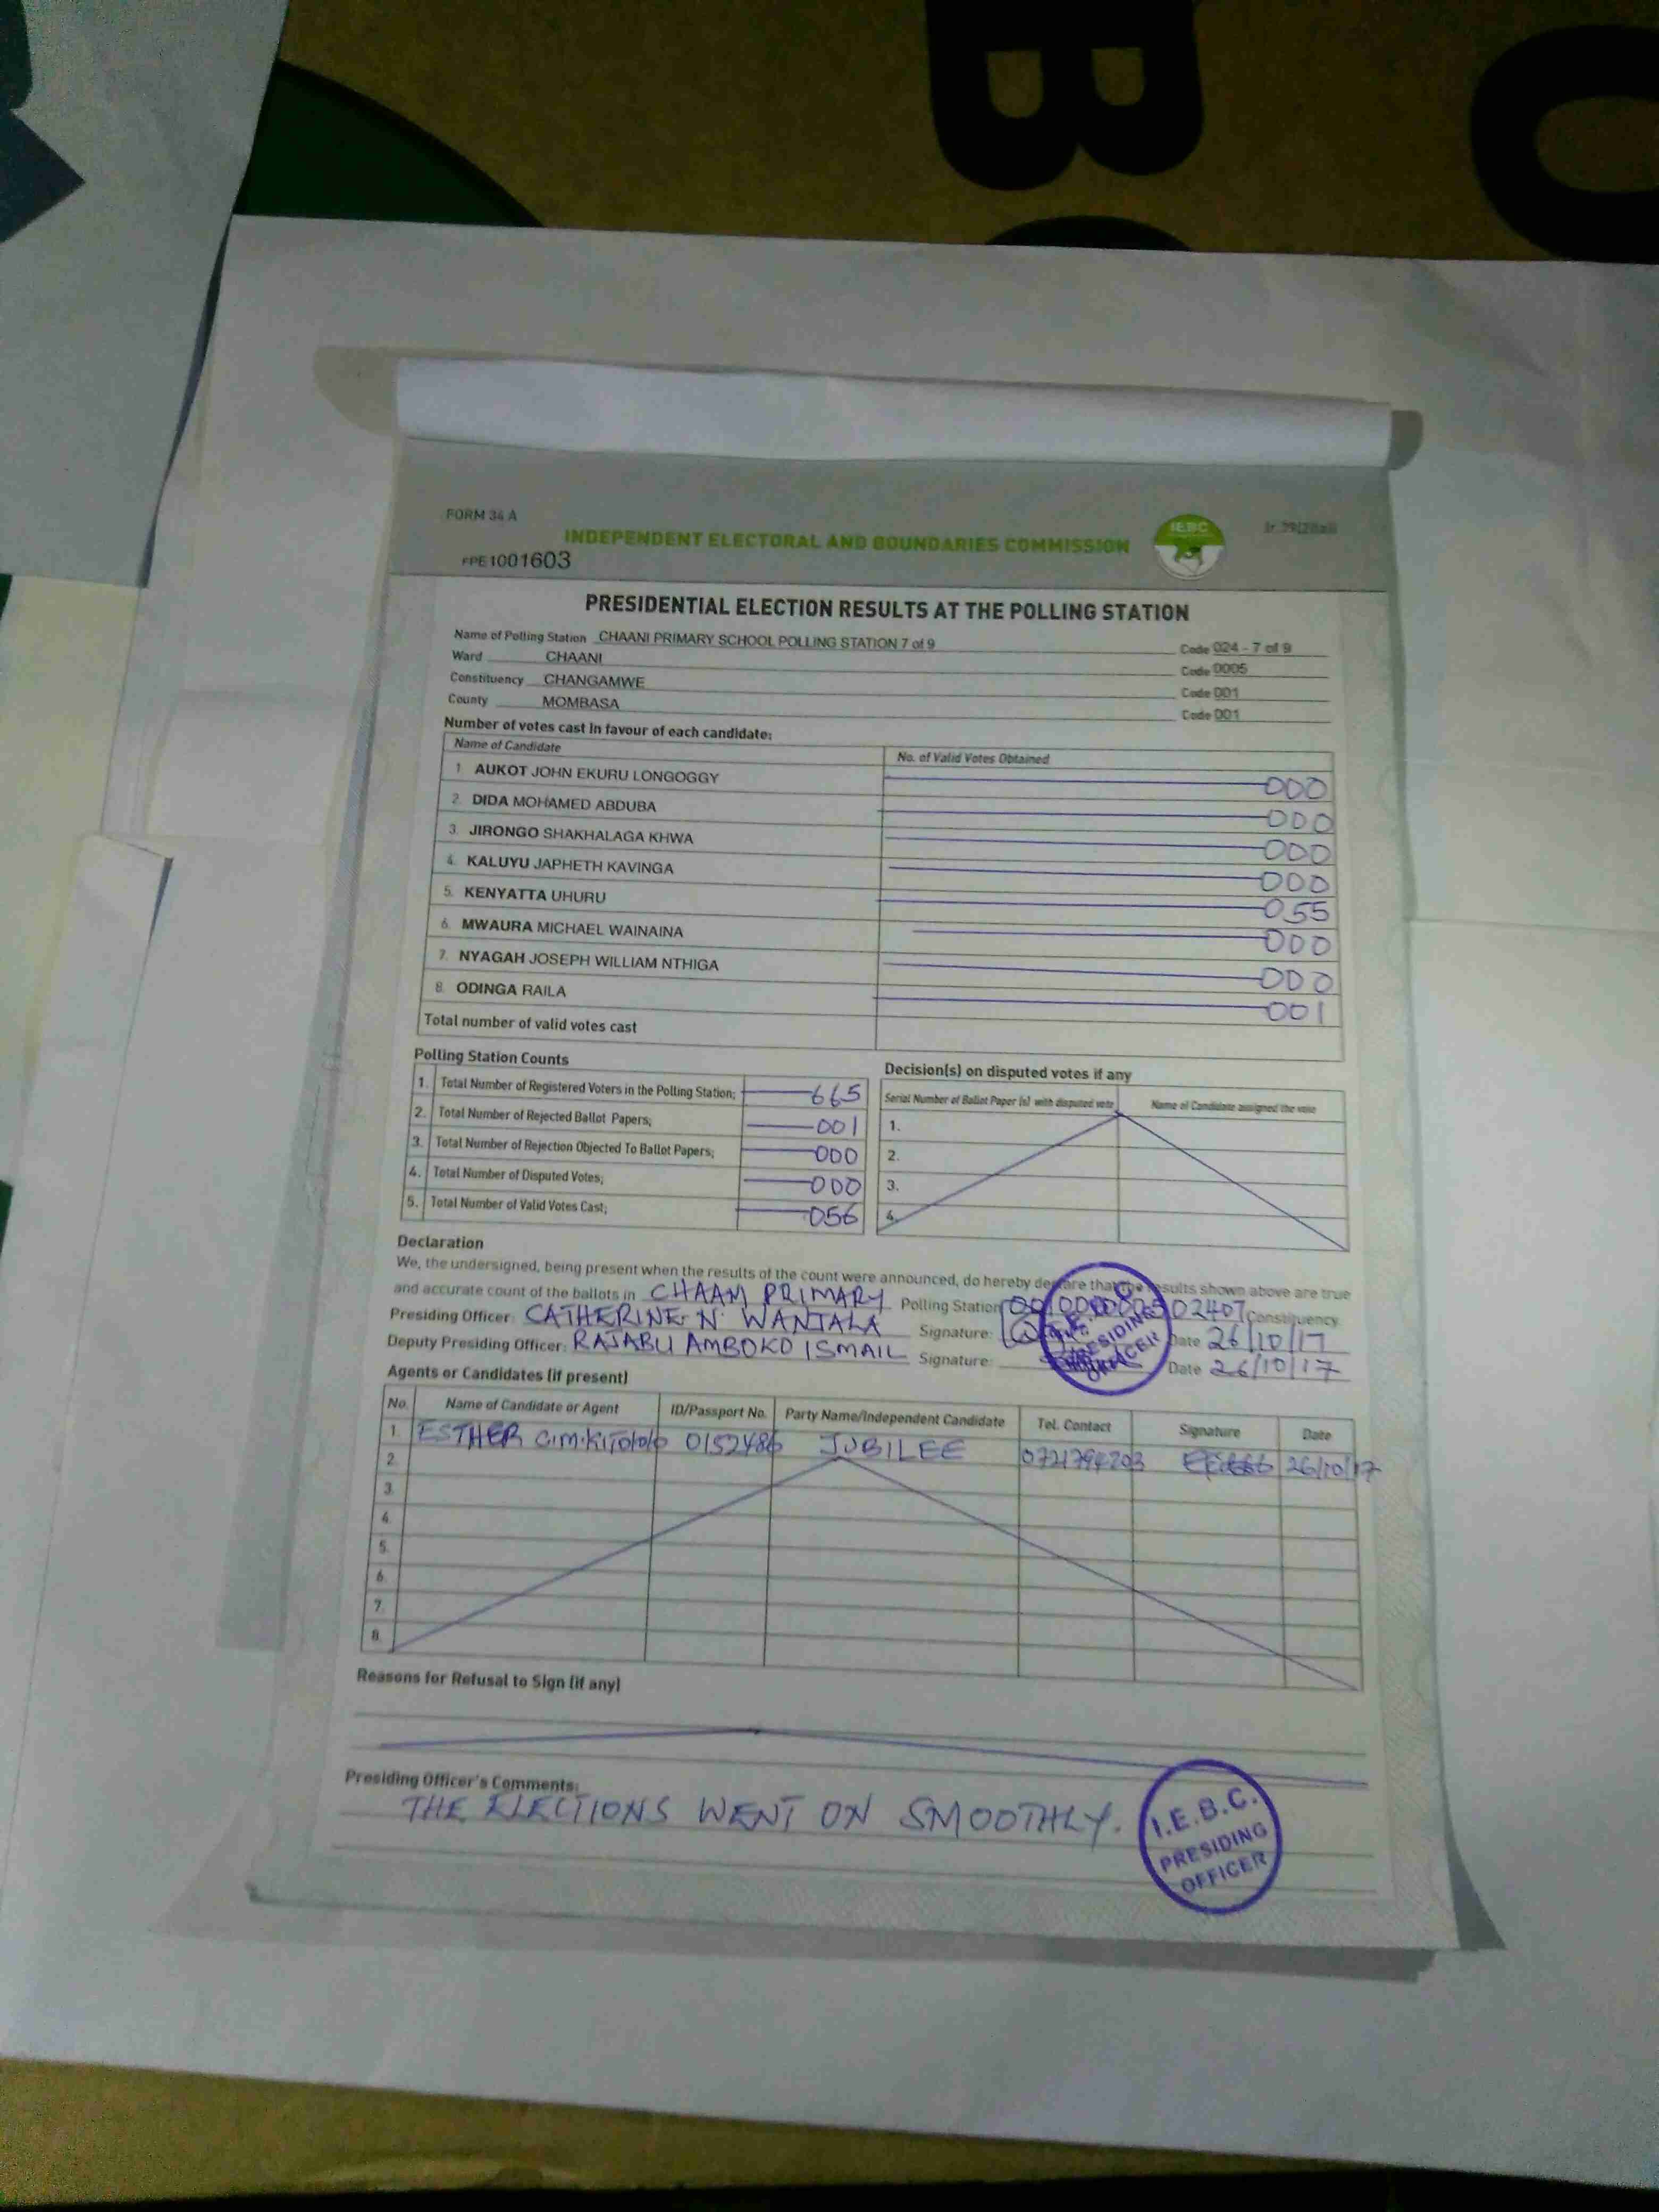 BO
FORM 34 A
INDEPENDENT ELECTORAL AND BOUNDARIES COMMISSION
IEBC
FPE1001603
PRESIDENTIAL ELECTION RESULTS AT THE POLLING STATION
Name of Polling Station CHAANI PRIMARY SCHOOL POLLING STATION 7 of 9 Code 024 - 7 of 9
Ward CHAANI Code 0005
Constituency CHANGAMWE Code 001
County MOMBASA Code 001
Number of votes cast in favour of each candidate:
Name of Candidate No. of Valid Votes Obtained
1 AUKOT JOHN EKURU LONGOGGY 000
2. DIDA MOHAMED ABDUBA 000
3. JIRONGO SHAKHALAGA KHWA 000
4. KALUYU JAPHETH KAVINGA 000
5. KENYATTA UHURU 055
6. MWAURA MICHAEL WAINAINA 000
7. NYAGAH JOSEPH WILLIAM NTHIGA 000
8. ODINGA RAILA 001
Total number of valid votes cast
Polling Station Counts
1. Total Number of Registered Voters in the Polling Station; 665
2. Total Number of Rejected Ballot Papers; 001
3. Total Number of Rejection Objected To Ballot Papers; 000
4. Total Number of Disputed Votes; 000
5. Total Number of Valid Votes Cast; 056
Decision(s) on disputed votes if any
Serial Number of Ballot Paper (s) with disputed vote Name of Candidate assigned the vote
1.
2.
3.
4.
Declaration
We, the undersigned, being present when the results of the count were announced, do hereby declare that the results shown above are true
and accurate count of the ballots in CHAANI PRIMARY Polling Station Constituency.
Presiding Officer: CATHERINE N. WANJALA Signature: Date 26/10/17
Deputy Presiding Officer: RAJABU AMBOKO ISMAIL Signature: Date 26/10/17
PRESIDING
OFFICER
Agents or Candidates (if present)
No. Name of Candidate or Agent ID/Passport No. Party Name/Independent Candidate Tel. Contact Signature Date
1. ESTHER 0152486 JUBILEE 0721794203 26/10/17
2.
3.
4.
5.
6.
7.
8.
Reasons for Refusal to Sign (if any)
Presiding Officer's Comments:
THE ELECTIONS WENT ON SMOOTHLY.
I.E.B.C.
PRESIDING
OFFICER